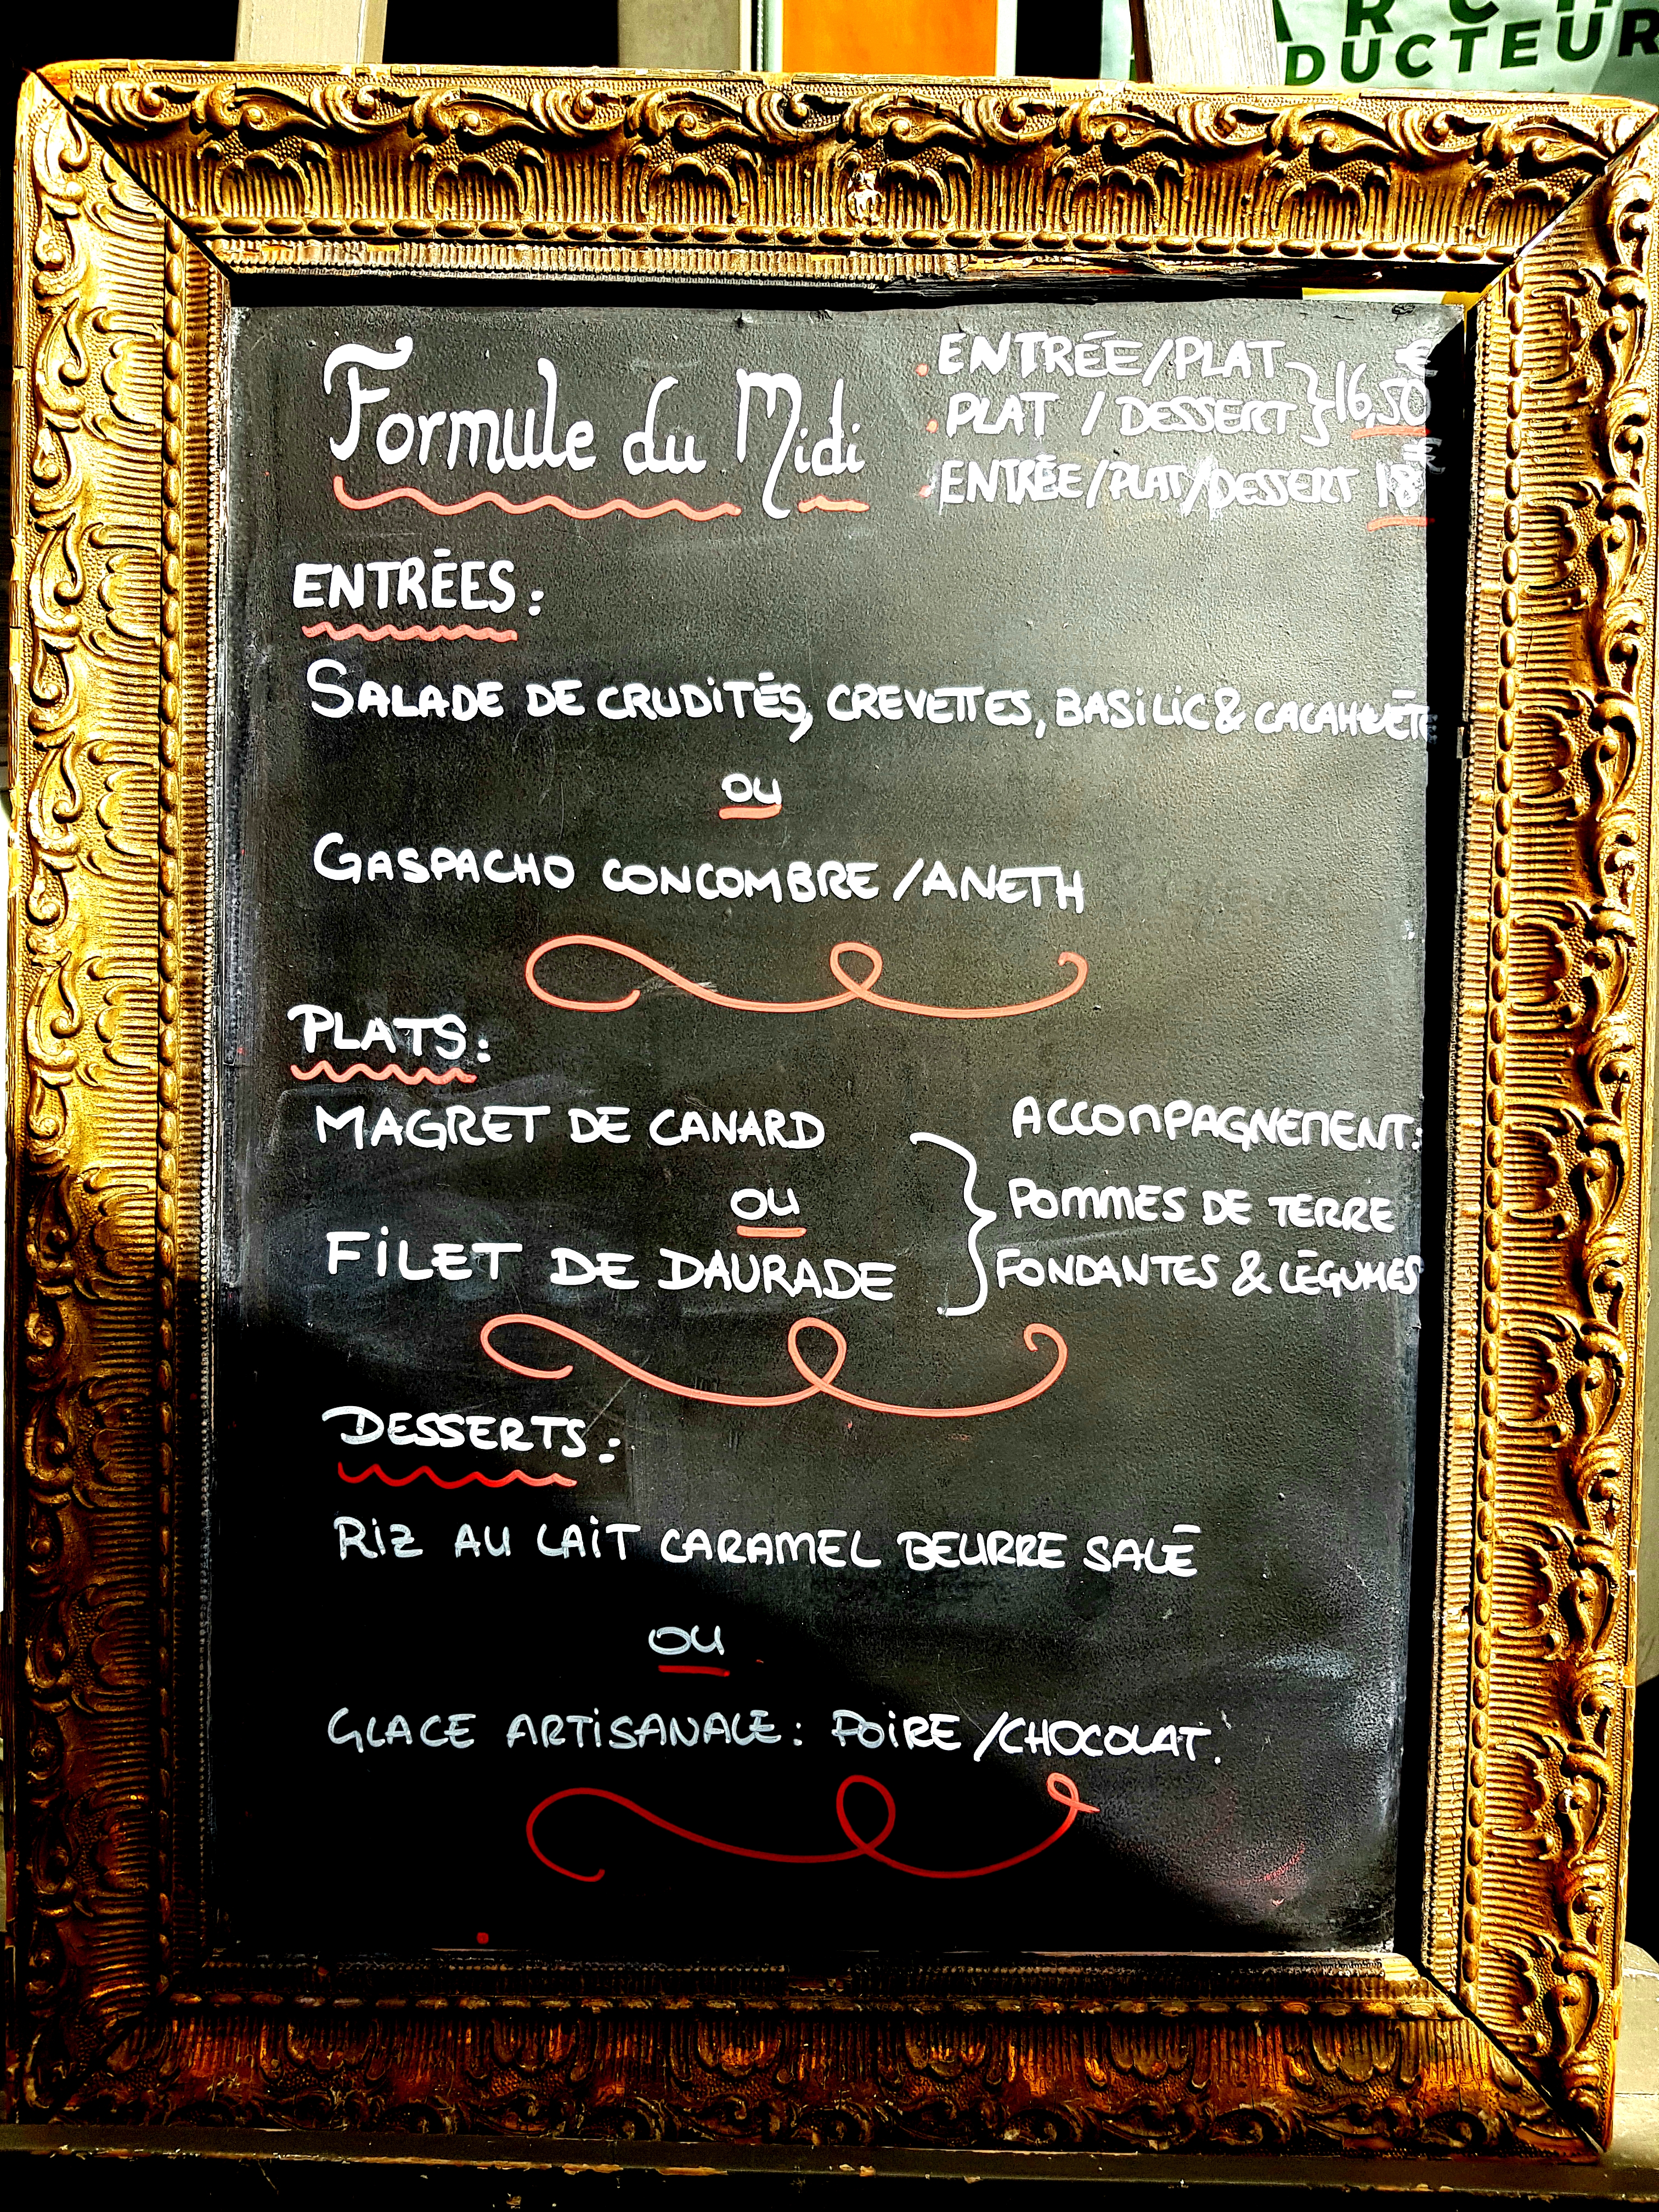 DUCTEUR
Formule du Midi
. ENTRÉE/PLAT
. PLAT / DESSERT } 16,50€
. ENTRÉE/PLAT/DESSERT 18€
ENTRÉES :
SALADE DE CRUDITÉS, CREVETTES, BASILIC & CACAHUÈTE
OU
GASPACHO CONCOMBRE /ANETH
PLATS :
MAGRET DE CANARD
OU
FILET DE DAURADE
ACCOMPAGNEMENT :
POMMES DE TERRE
FONDANTES & LÉGUMES
DESSERTS :
RIZ AU LAIT CARAMEL BEURRE SALÉ
OU
GLACE ARTISANALE : POIRE /CHOCOLAT.